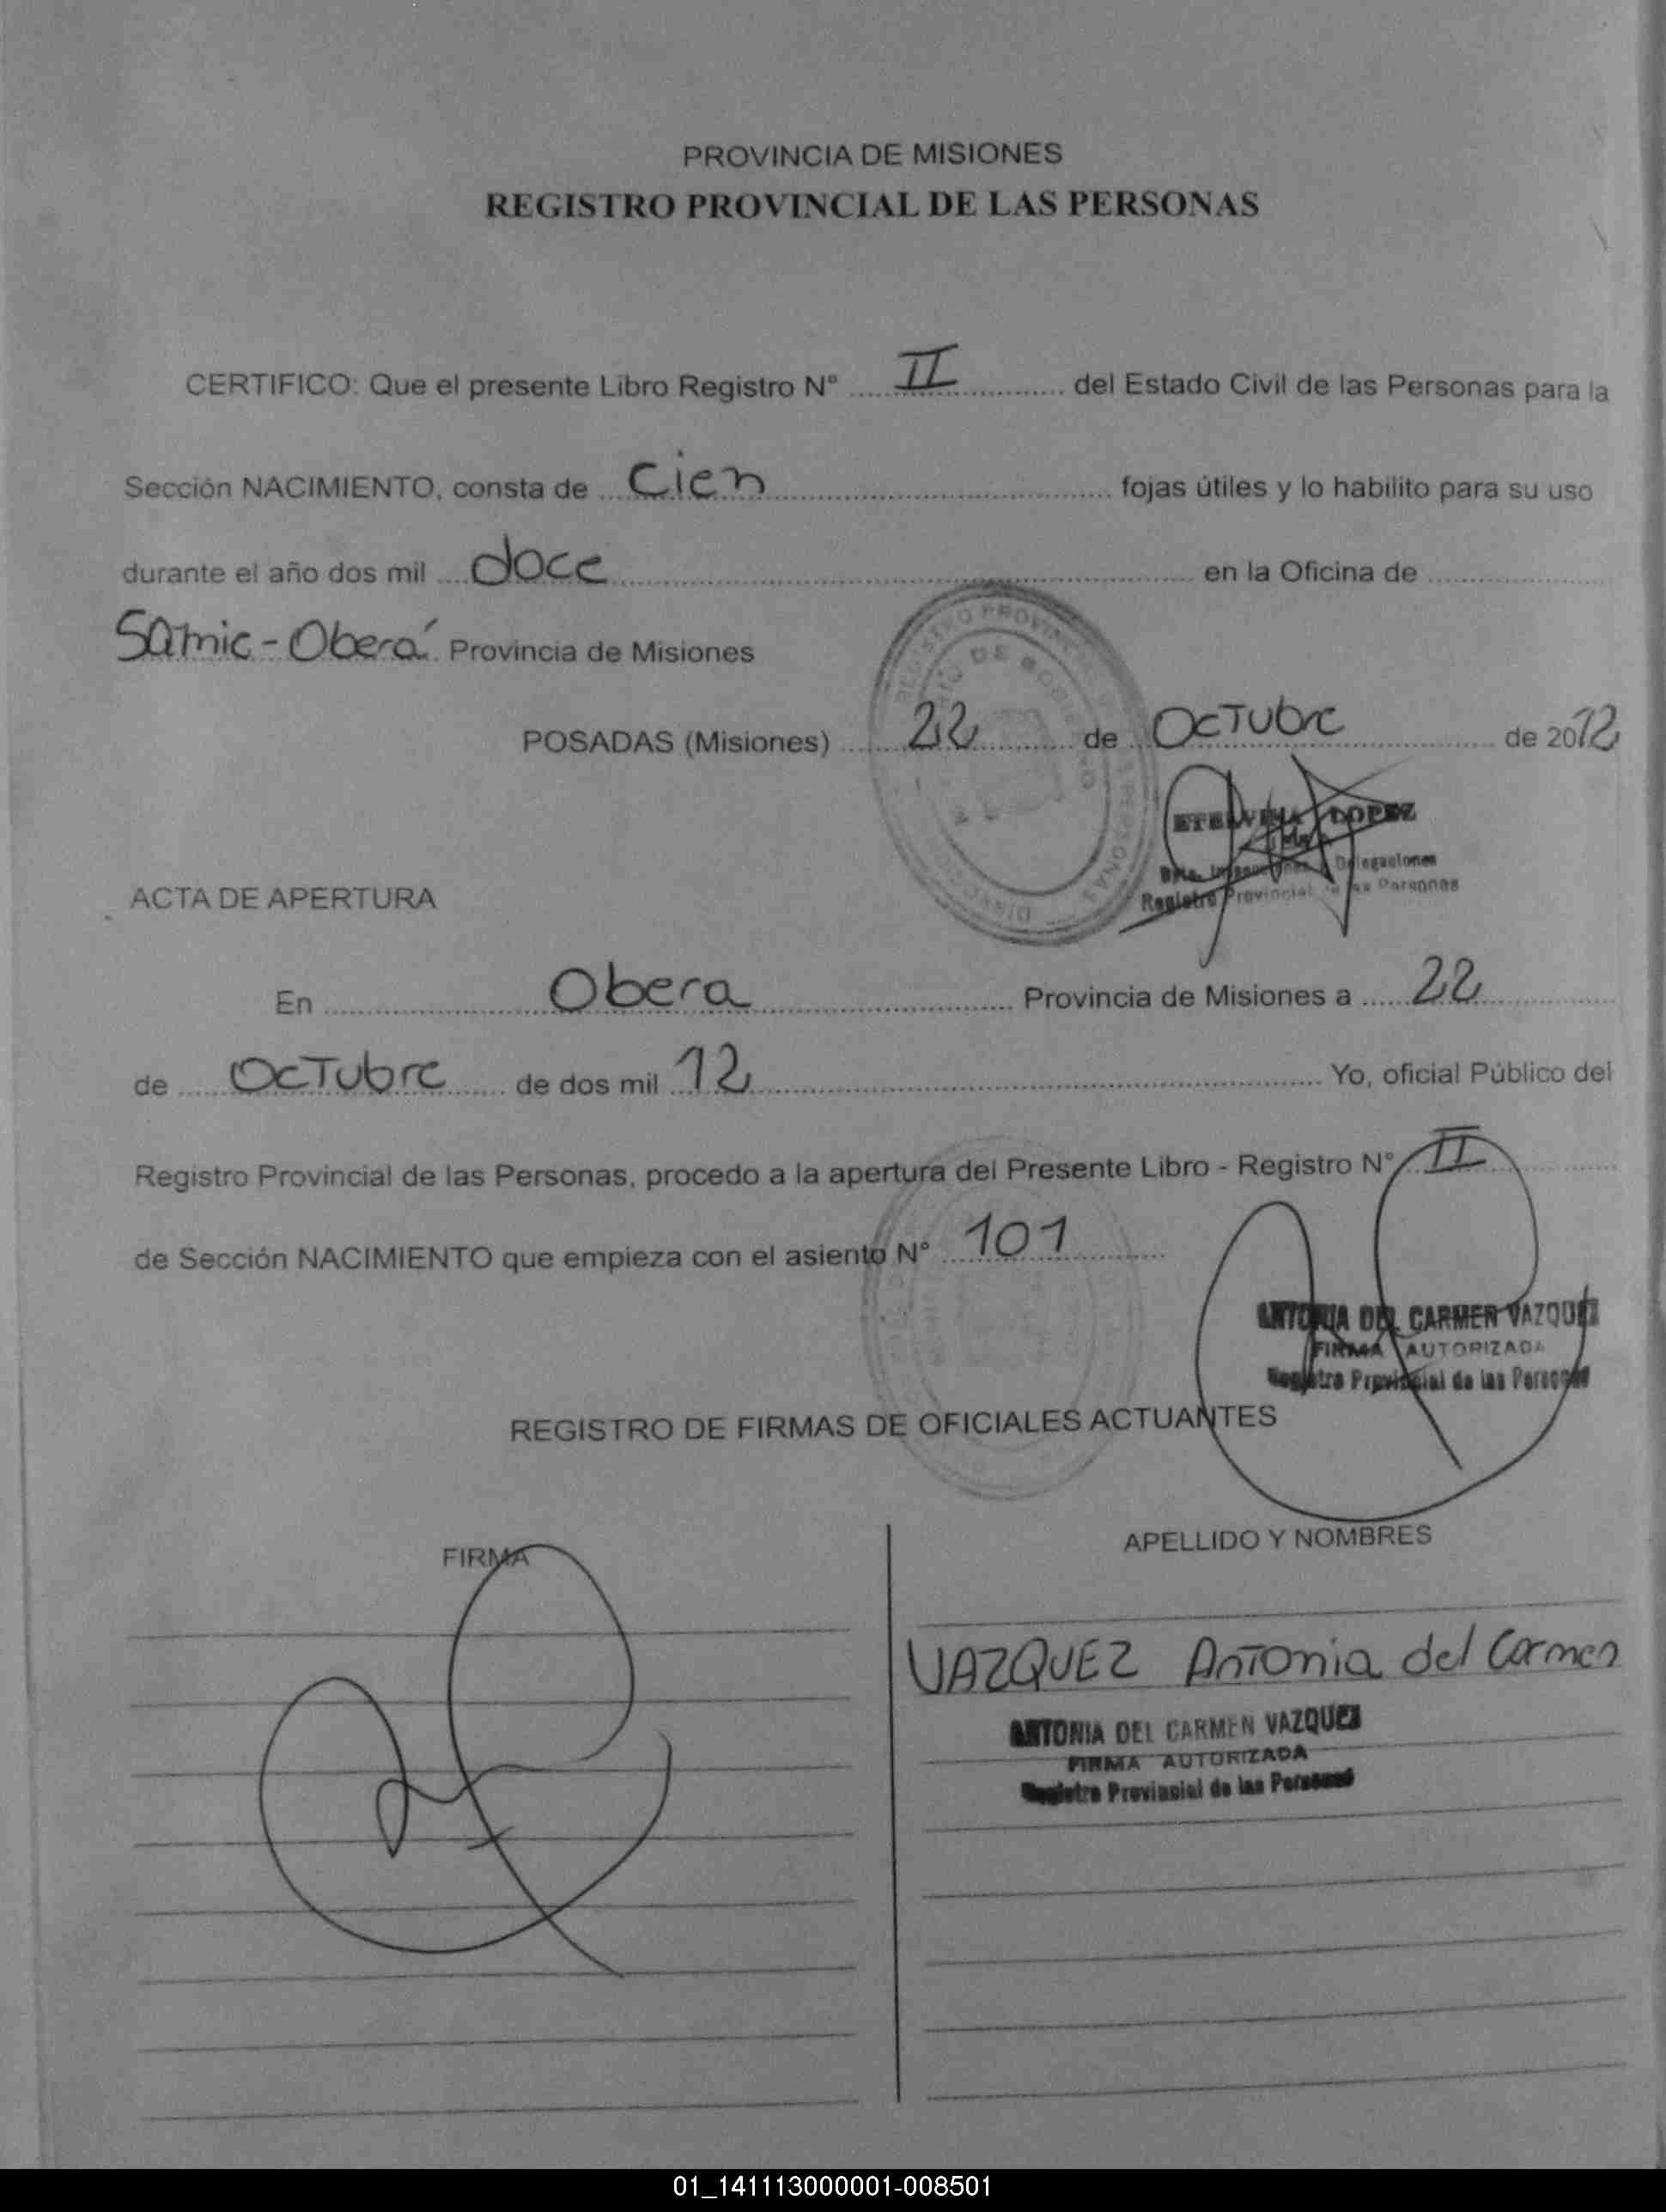 PROVINCIA DE MISIONES
REGISTRO PROVINCIAL DE LAS PERSONAS
CERTIFICO: Que el presente Libro Registro N° II del Estado Civil de las Personas para la
Sección NACIMIENTO, consta de Cien fojas útiles y lo habilito para su uso
durante el año dos mil doce en la Oficina de
Samic - Oberá Provincia de Misiones
POSADAS (Misiones) 22 de Octubre de 2012
ETELVINA LOPEZ
Delegaciones
Registro Provincial de las Personas
ACTA DE APERTURA
En Obera Provincia de Misiones a 22
de Octubre de dos mil 12 Yo, oficial Público del
Registro Provincial de las Personas, procedo a la apertura del Presente Libro - Registro N° II
de Sección NACIMIENTO que empieza con el asiento N° 101
ANTONIA DEL CARMEN VAZQUEZ
FIRMA AUTORIZADA
Registro Provincial de las Personas
REGISTRO DE FIRMAS DE OFICIALES ACTUANTES
FIRMA
APELLIDO Y NOMBRES
VAZQUEZ Antonia del Carmen
ANTONIA DEL CARMEN VAZQUEZ
FIRMA AUTORIZADA
Registro Provincial de las Personas
01_141113000001-008501